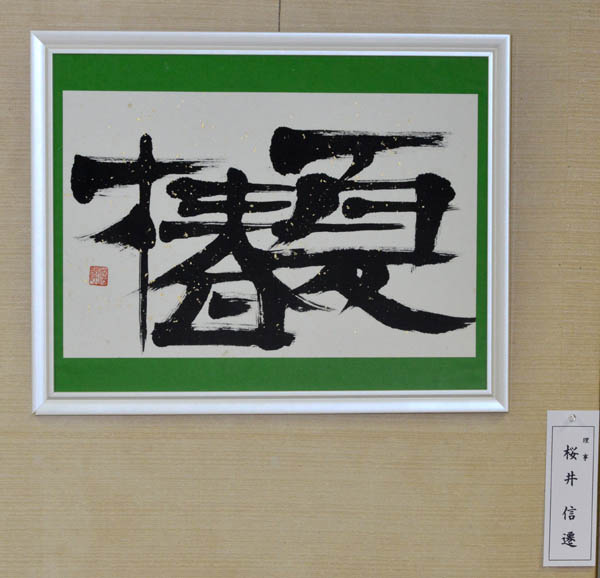 夏椿
理事
桜井信遷